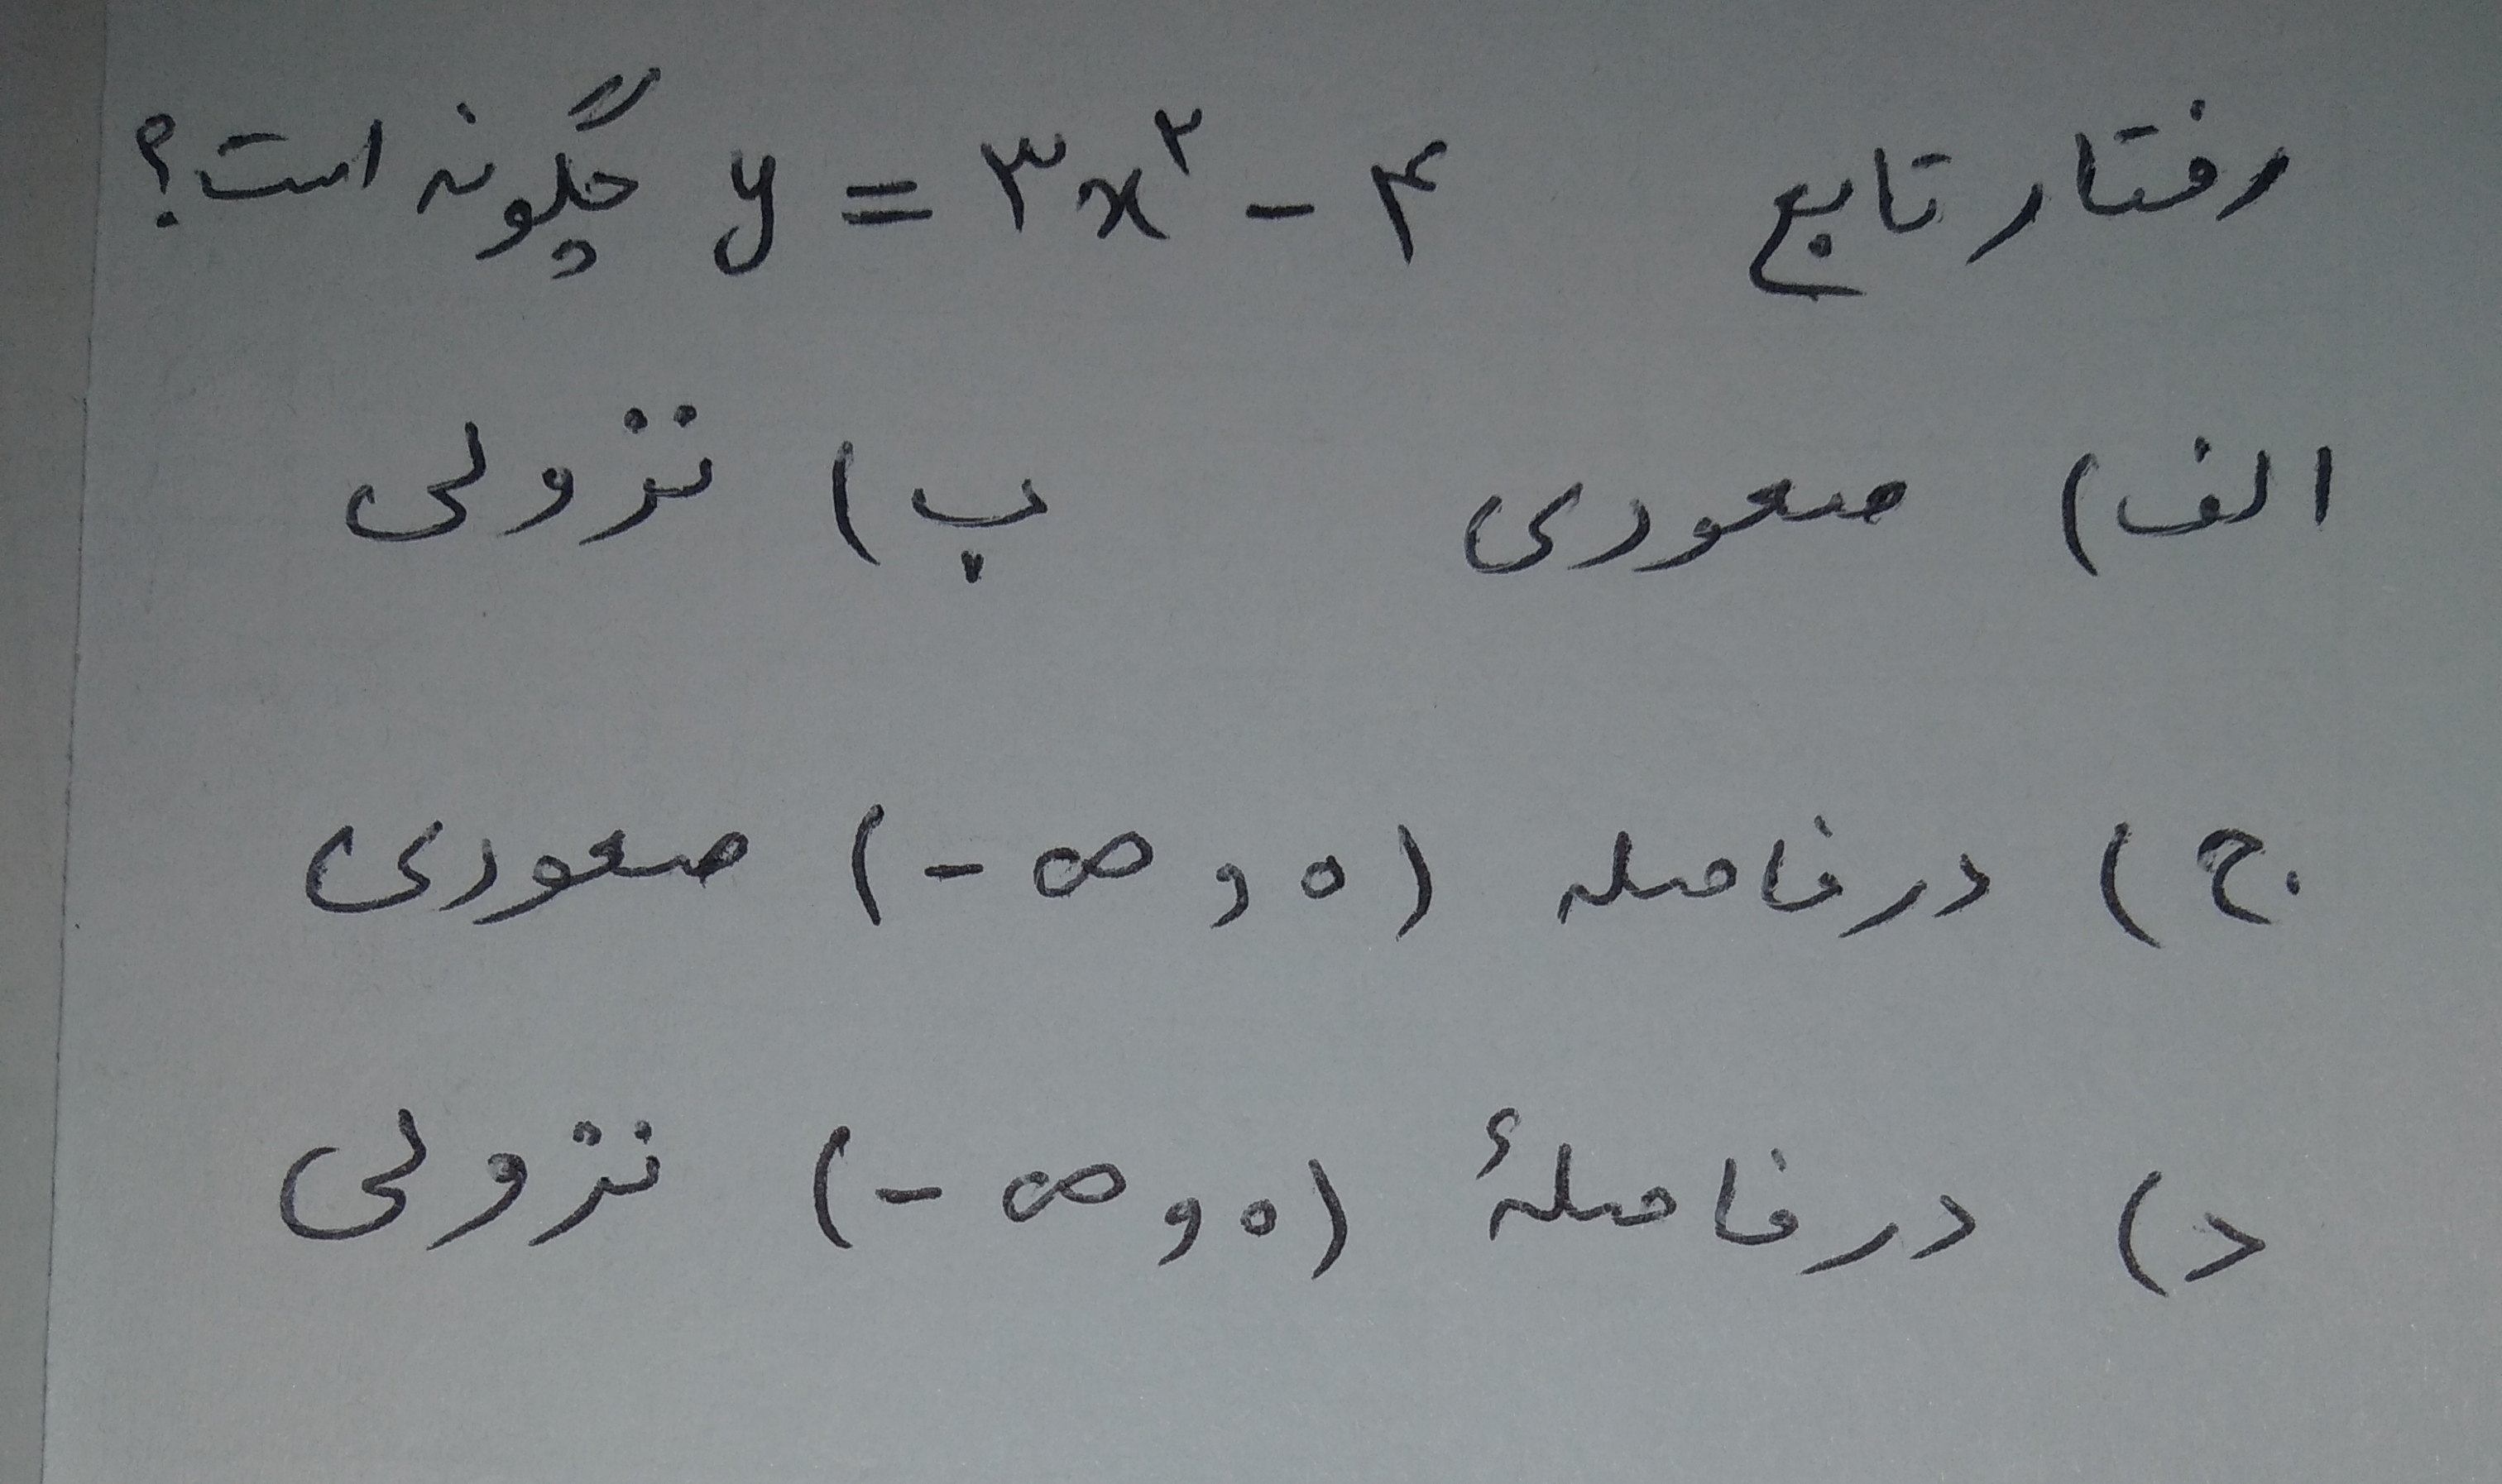 رفتار تابع y = ۳x^۲ - ۴ چگونه است؟
الف) صعودی پ) نزولی
ج) در فاصله (-∞ و ۰) صعودی
د) در فاصلهٔ (-∞ و ۰) نزولی